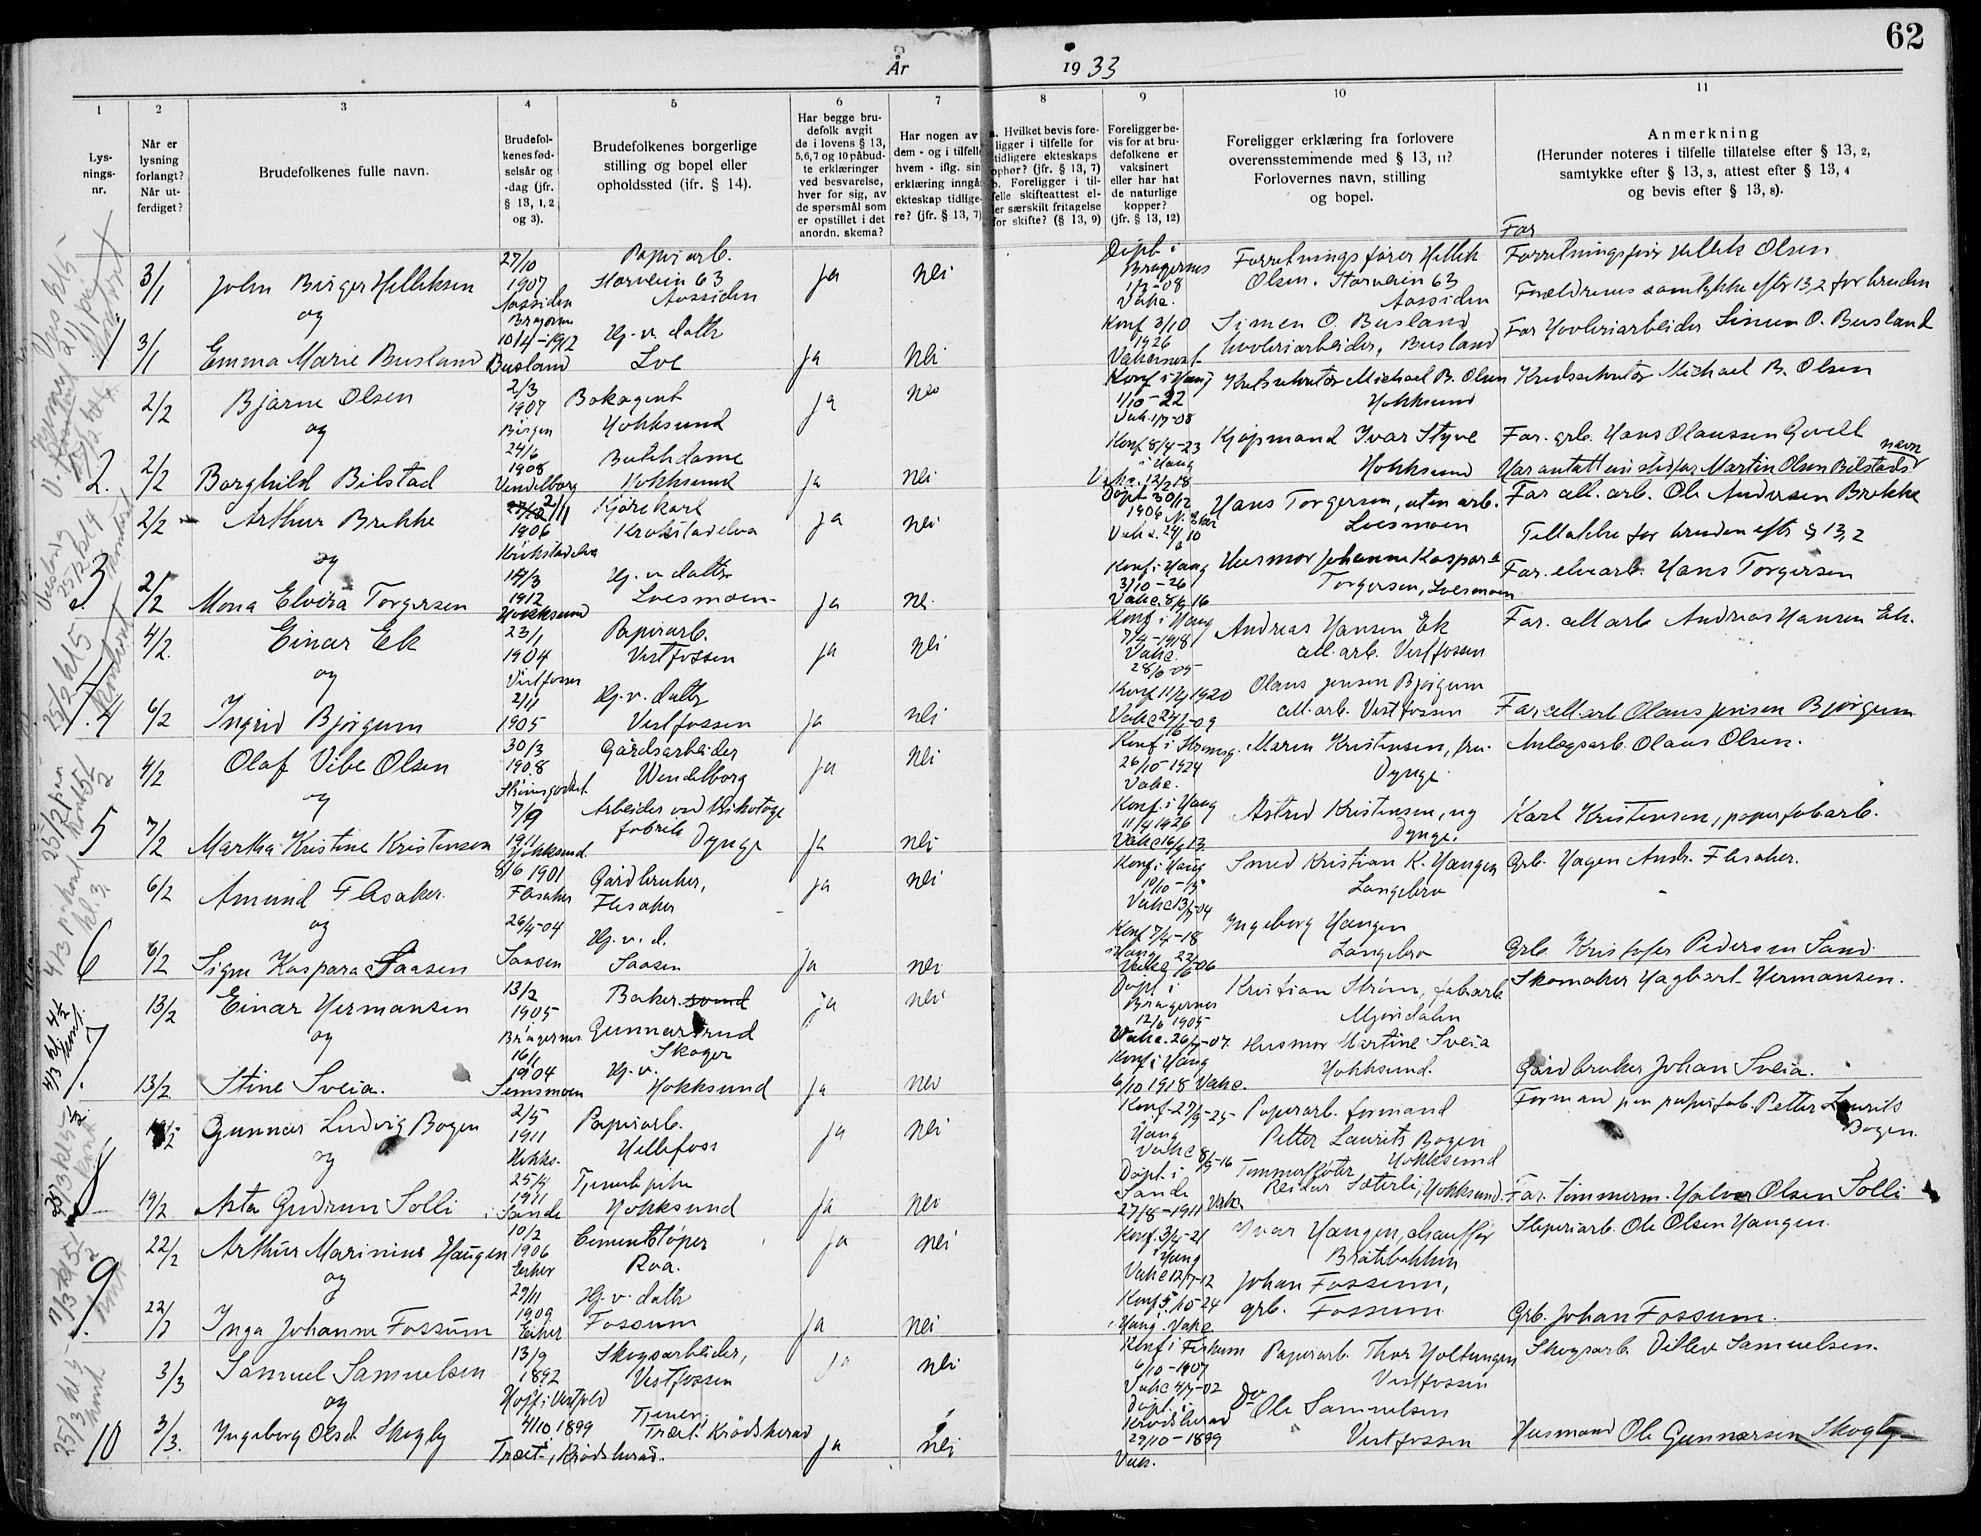 62
År 1933
1
2
3
4
5
6
7
8
9
10
11
Lys-
nings-
nr.
Når er
lysning
forlangt?
Når ut-
ferdiget?
Brudefolkenes fulle navn.
Brudefol-
kenes fød-
selsår og
-dag (jfr.
§ 13, 1, 2
og 3).
Brudefolkenes borgerlige
stilling og bopel eller
opholdssted (ifr. § 14).
Har begge bru-
defolk avgit
de i lovens § 13,
5,6,7 og 10 påbud-
te erklæringer
ved besvarelse,
hver for sig, av
de spørsmål som
er opstillet i det
anordn. skema?
Har nogen av
dem - og i tilfelle
hvem - iflg. sin
erklæring inngå
ekteskap tidlige-
re? (jfr. § 13, 7)
a. Hvilket bevis fore-
ligger i tilfelle for
tidligere ekteskaps
ophør? (jfr. § 13, 7)
b. Foreligger i til-
felle skifteattest el-
er særskilt fritagelse
for skifte? (§ 13, 9)
Foreligger be-
vis for at bru-
defolkene er
vaksinert
eller har hat
de naturlige
kopper?
(jfr. § 13, 12)
Foreligger erklæring fra forlovere
overensstemmende med § 13, 11?
Forlovernes navn, stilling
og bopel.
Anmerkning
(Herunder noteres i tilfelle tillatelse efter § 13, 2,
samtykke efter § 13, 3, attest efter § 13, 4
og bevis efter § 13, 8).
1.
3/1
John Birger Helliksen
og
27/10
1907
Aassiden
Bragernes
Papirarb.
Storveien 63
Aassiden
ja
nei
Døpt i
Bragernes
1/3-08
Vakc.
Forretningsfører Hellik
Olsen. Storveien 63
Aassiden
Far
Forretningsfør Hellik Olsen
Foreldrenes samtykke eftr 13,2 for bruden
3/1
Emma Marie Busland
10/4-1912
Busland
Hj. v. datter
Loe
ja
nei
Konf 3/10
1926
Simen O. Busland
høvleriarbeider, Busland
Far Høvleriarbeider Simen O. Busland
2.
2/2
Bjarne Olsen
og
2/3
1907
Bergen
Bokagent
Hokksund
ja
nei
Konf i Haug
1/10-22
Vak. 1/7-08
Kretssekretær Michael B. Olsen
Hokksund
Kredssekretær Michael B. Olsen
2/2
Borghild Bilstad
24/6
1908
Vendelborg
Butikdame
Hokksund
ja
nei
Konf 8/4-23
i Haug
Kjøpmand Ivar Styve
Hokksund
Far. grb. Hans Olaussen Gevelt
Har antatt sin stedfar Martin Olsen Bilstads navn
3.
2/2
Arthur Brekke
og
2/11
1906
Krokstadelva
Kjørekarl
Krokstadelva
ja
nei
Døpt 30/12
1906 N. Eker
Hans Torgersen, uten arb.
Loesmoen
Far all. arb. Ole Andersen Brekke
Tillatelse for bruden eftr § 13,2
2/2
Mona Elvira Torgersen
14/3
1912
Hokksund
Hj. v. datter
Loesmoen
ja
nei
Konf i Haug
3/10-26
Vakc. 8/9 16
Husmor Johanne Kaspara
Torgersen, Loesmoen
Far. elvearb. Hans Torgersen
4
4/2.
Einar Ek
og
23/1
1904
Vestfossen
Papirarb.
Vestfossen
ja
nei
Konf i Haug
7/4-1918
Vakc.
28/6-05
Andreas Hansen Ek
all. arb. Vestfossen
Far. all arb Andreas Hansen Ek.
6/2
Ingrid Bjørgum
2/11
1905
Hj. v. datter
Vestfossen
ja
nei
Konf 11/4 1920
Olaus Jensen Bjørgum
all. arb. Vestfossen
Far all. arb Olaus Jensen Bjørgum
5
4/2
Olaf Vibe Olsen
og
30/3
1908
Gårdsarbeider
Wendelborg
ja
nei
Konf i Strømsg.
26/10-1924
Vakc.
Maren Kristensen, fru.
Dynge.
Anlægsarb. Olaus Olsen.
7/2
Martha Kristine Kristensen
7/9
1911
Hokksund
Arbeider ved trikotage
fabrik Dynge
ja
nei
Konf. i Haug
11/4 1926
Astrid Kristensen, ug
Dynge.
Karl Kristensen, papirfabarb.
6
6/2
Amund Flesaker
og
8/6 1901
Flesaker
Gårdbruker,
Flesaker
ja
nei
Konf i Haug
Smed Kristian K. Haugen
Langebro
Grb. Hagen Andr. Flesaker.
6/2
Signe Kaspara Saasen
26/4-04
Saasen
Hj. v. d.
Saasen
ja
nei
Konf 7/4-18
i Haug
Ingeborg Haugen
Langebro
Grb. Kristofer Pedersen Sand.
7.
13/2
Einar Hermansen
og
13/2
1905
Bragernes
Baker
Gunnarsrud
Skoger
ja
nei
Døpt i
Bragernes
12/6 1905
Vakc. 26/9-07.
Kristian Strøm, fabarb
Mjøndalen
Skomaker Hagbart Hermansen.
13/2.
Stine Sveia.
16/1
1904
Semsmoen
Hj. v.
Hokksund
ja
nei
Konf i Haug
6/10 1918 Vakc.
Husmor Martine Sveia
Hokksund.
Gårdbruker Johan Sveia.
8
Gunnar Ludvig Bogen
og
2/5
1911
Hokks.
Papirarb.
Hellefoss
ja
nei
Konf-27/9-25-
Haug
Vakc 8/9-16
Papirarb. formand
Petter Laurits Bogen
Hokksund
Formand paa papirfab. Petter Laurits
Bogen.
19/2
Asta Gudrun Solli
25/4
1911
i Sande
Tjenestepike
Hokksund
ja
nei
Døpt i
Sande
27/8-1911
Vakc
Tømmerfløter
Reidar Sæterli, Hokksund.
Far. tømmerm. Halvor Olsen Solli
9
22/2
Arthur Marinius Haugen
og
10/2
1906
Eiker
Cementstøper
Roa.
ja
nei
Konf. 3/4-21
i Haug
Vakc 12/7-12
Ivar Haugen, chauffør
Bråtebakken
Sliperiarb. Ole Olsen Haugen.
22/2
Inga Johanne Fossum
29/11
1909
Eiker
Hj. v. datter
Fossum
ja
nei
Konf 5/10-24
i Haug. Vakc
Johan Fossum,
grb. Fossum
Grb. Johan Fossum.
10
3/3
Samuel Samuelsen
og
13/9
1892
Hof i Vestfold
Skogsarbeider,
Vestfossen
ja
nei
Konf i Fiskum
6/10-1907
Vakc 4/7-02
Papirarb. Thor Holtungen
Vestfossen
Skogsarb. Ditlev Samuelsen.
3/3.
Ingeborg Olsd. Skogly
4/10 1899
Træet i Krødsherad.
Tjener,
Træet Krødsherad
ja
nei
Døpt. i
Krødsherad
29/10-1899
Vak.
Do Ole Samuelsen
Vestfossen
Husmand Ole Gunnarsen Skogly